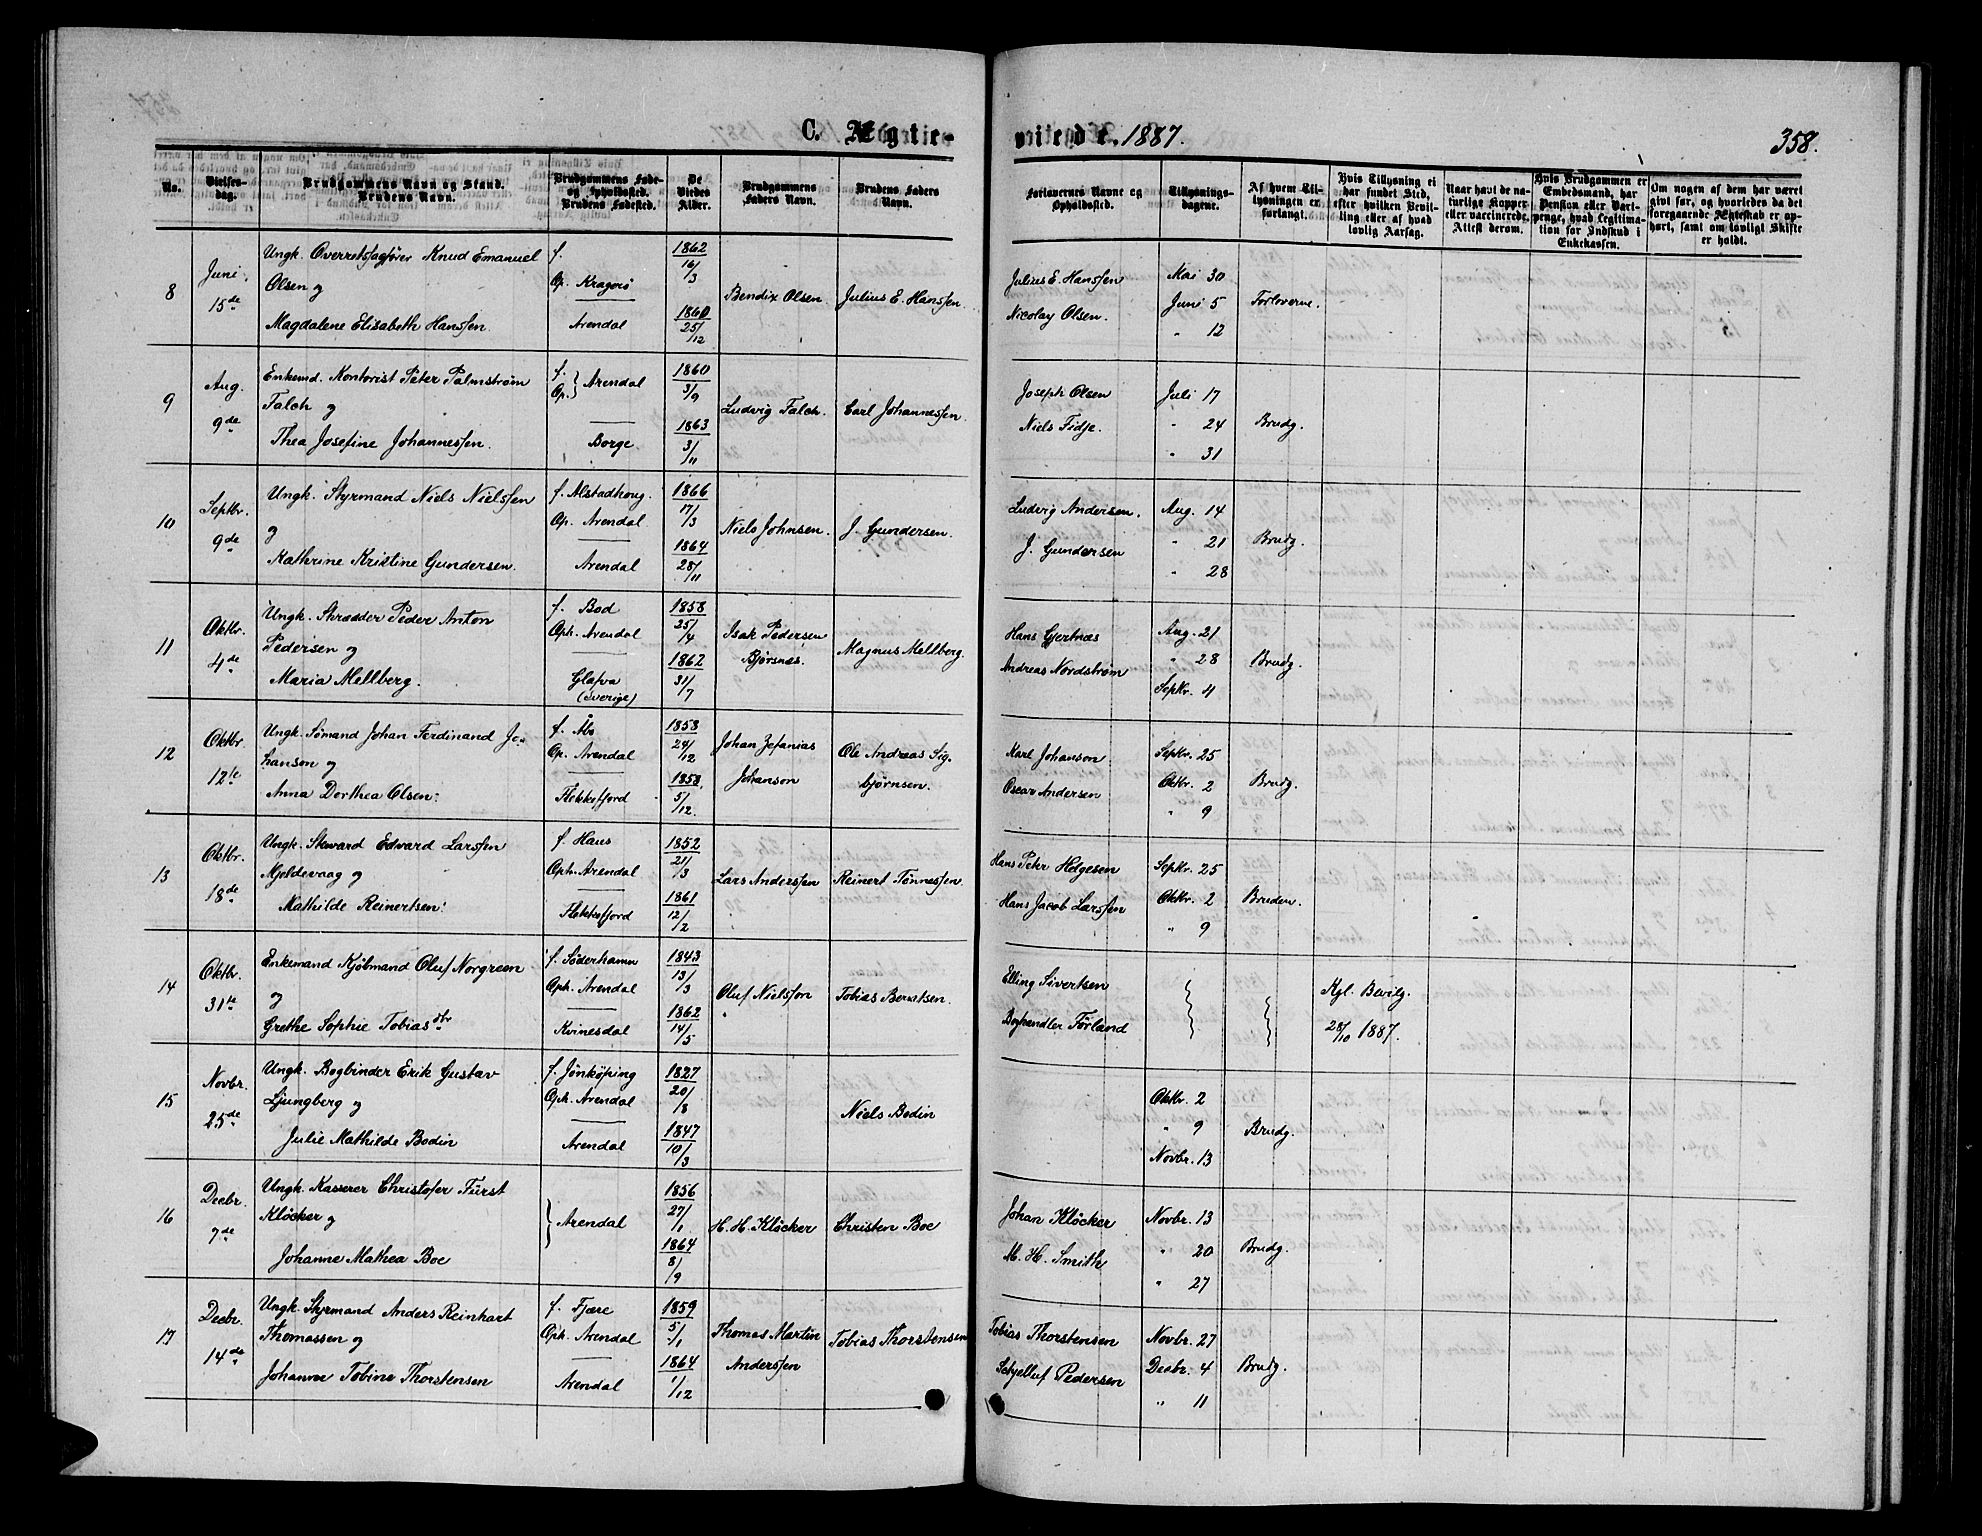 C. Ægte-
viede. 1887.
358.
No.
Vielses-dag.
Brudgommens Navn og Stand.
Brudens Navn.
Brudgommens Føde- og Opholdssted.
Brudens Fødested.
De Viedes Alder.
Brudgommens Faders Navn.
Brudens Faders Navn.
Forlovernes Navne og Opholdssted.
Tillysnings-dagene.
Af hvem Tillysningen er forlangt.
Hvis Tillysning ei har fundet Sted, efter hvilken Bevilling eller af hvad lovlig Aarsag.
Naar havt de naturlige Kopper eller vaccinerede. Attest derom.
Hvis Brudgommen er Embedsmand, har Pension eller Vartpenge, hvad Legitimation for Indskud i Enkekassen.
Om nogen af dem har været gift før, og hvorledes da det foregaaende Ægteskab er ophørt, samt om lovligt Skifte er holdt.
8
Juni 15de
Ungk. Overretssagfører Knud Emanuel
Olsen og
Magdalene Elisabeth Hanssen.
f.
Op. Kragerø
Arendal
1862 16/3
1860 25/12
Bendix Olsen.
Julius E. Hanssen.
Julius E. Hanssen
Nicolay Olsen.
Mai 30
Juni 5
" 12
Forloverne.
9
Aug. 9de
Enkemd. Kontorist Peter Palmstrøm
Falch og
Thea Josefine Johannessen.
f.
Op. } Arendal
Borge
1860 3/9
1863 3/11
Ludvig Falch.
Carl Johannessen.
Joseph Olsen
Niels Fidje.
Juli 17
" 24
" 31
Brudg.
10
Septbr. 9de
Ungk. Styrmand Niels Nielssen
og
Kathrine Kristine Gundersen.
f. Alstadhoug.
Op. Arendal
Arendal
1866 17/3
1864 28/11
Niels Johnsen.
J. Gundersen.
Ludvig Andersen.
J. Gundersen
Aug. 14
" 21
" 28
Brudg.
11
Oktbr. 4de
Ungk. Skrædder Peder Anton
Pedersen og
Maria Mellberg.
f. Bod
Oph. Arendal
Glafva
(Sverige)
1858 25/4
1862 31/7
Isak Pedersen
Bjørsnæs.
Magnus Mellberg.
Hans Gjertnæs
Andreas Nordstrøm
Aug. 21
" 28
Septbr. 4
Brudg.
12
Oktbr. 12te
Ungk. Sømand Johan Ferdinand Jo-
hanson og
Anna Dorthea Olsen.
f. Åbo
Op. Arendal
Flekkefjord
1858 24/12
1858. 5/12.
Johan Zefanias
Johanson
Ole Andreas Sig-
bjørnsen.
Karl Johanson.
Oscar Andersen
Septbr. 25
Oktbr. 2
" 9
Brudg.
13
Oktbr. 18de
Ungk. Steward Edvard Larssen
Mjeldevaag og
Mathilde Reinertsen.
f. Haus
Oph. Arendal
Flekkefjord
1852 21/3
1861 12/2
Lars Anderssen
Reinert Tønnessen.
Hans Peter Helgesen
Hans Jacob Larssen
Septbr. 25
Oktbr. 2
" 9
Bruden.
14
Oktbr. 31te
Enkemand Kjøbmand Oluf Norgreen
og
Grethe Sophie Tobiasdtr
f. Söderhamn
Oph. Arendal
Kvinesdal
1843 13/3
1862 14/5
Oluf Nielsson
Tobias Berntsen.
Elling Sivertsen
Boghandler Førland
Kgl. Bevilg.
28/10 1887.
15
Novbr. 25de
Ungk. Bogbinder Erik Gustav
Ljungberg og
Julie Mathilde Bodin
f. Jönköping
Oph. Arendal
Arendal
1827 20/8
1847 10/3
Niels Bodin
Oktbr. 2
" 9
Novbr. 13
Brudg.
16
Decbr. 7de
Ungk. Kasserer Christofer Fürst
Kløcker og
Johanne Mathea Boe
} Arendal
1856 27/1
1864 8/9
H. H. Kløcker
Christen Boe
Johan Kløcker
M. H. Smith
Novbr. 13
" 20
" 27
Brudg.
17
Decbr. 14de
Ungk. Styrmand Anders Reinhart
Thomassen og
Johanne Tobine Thorstensen
f. Fjære
Oph. Arendal
Arendal
1859 5/1
1864 1/12
Thomas Martin
Anderssen
Tobias Thorstensen
Tobias Thorstensen
Schjelluf Pedersen
Novbr. 27
Decbr. 4
" 11
Brudg.